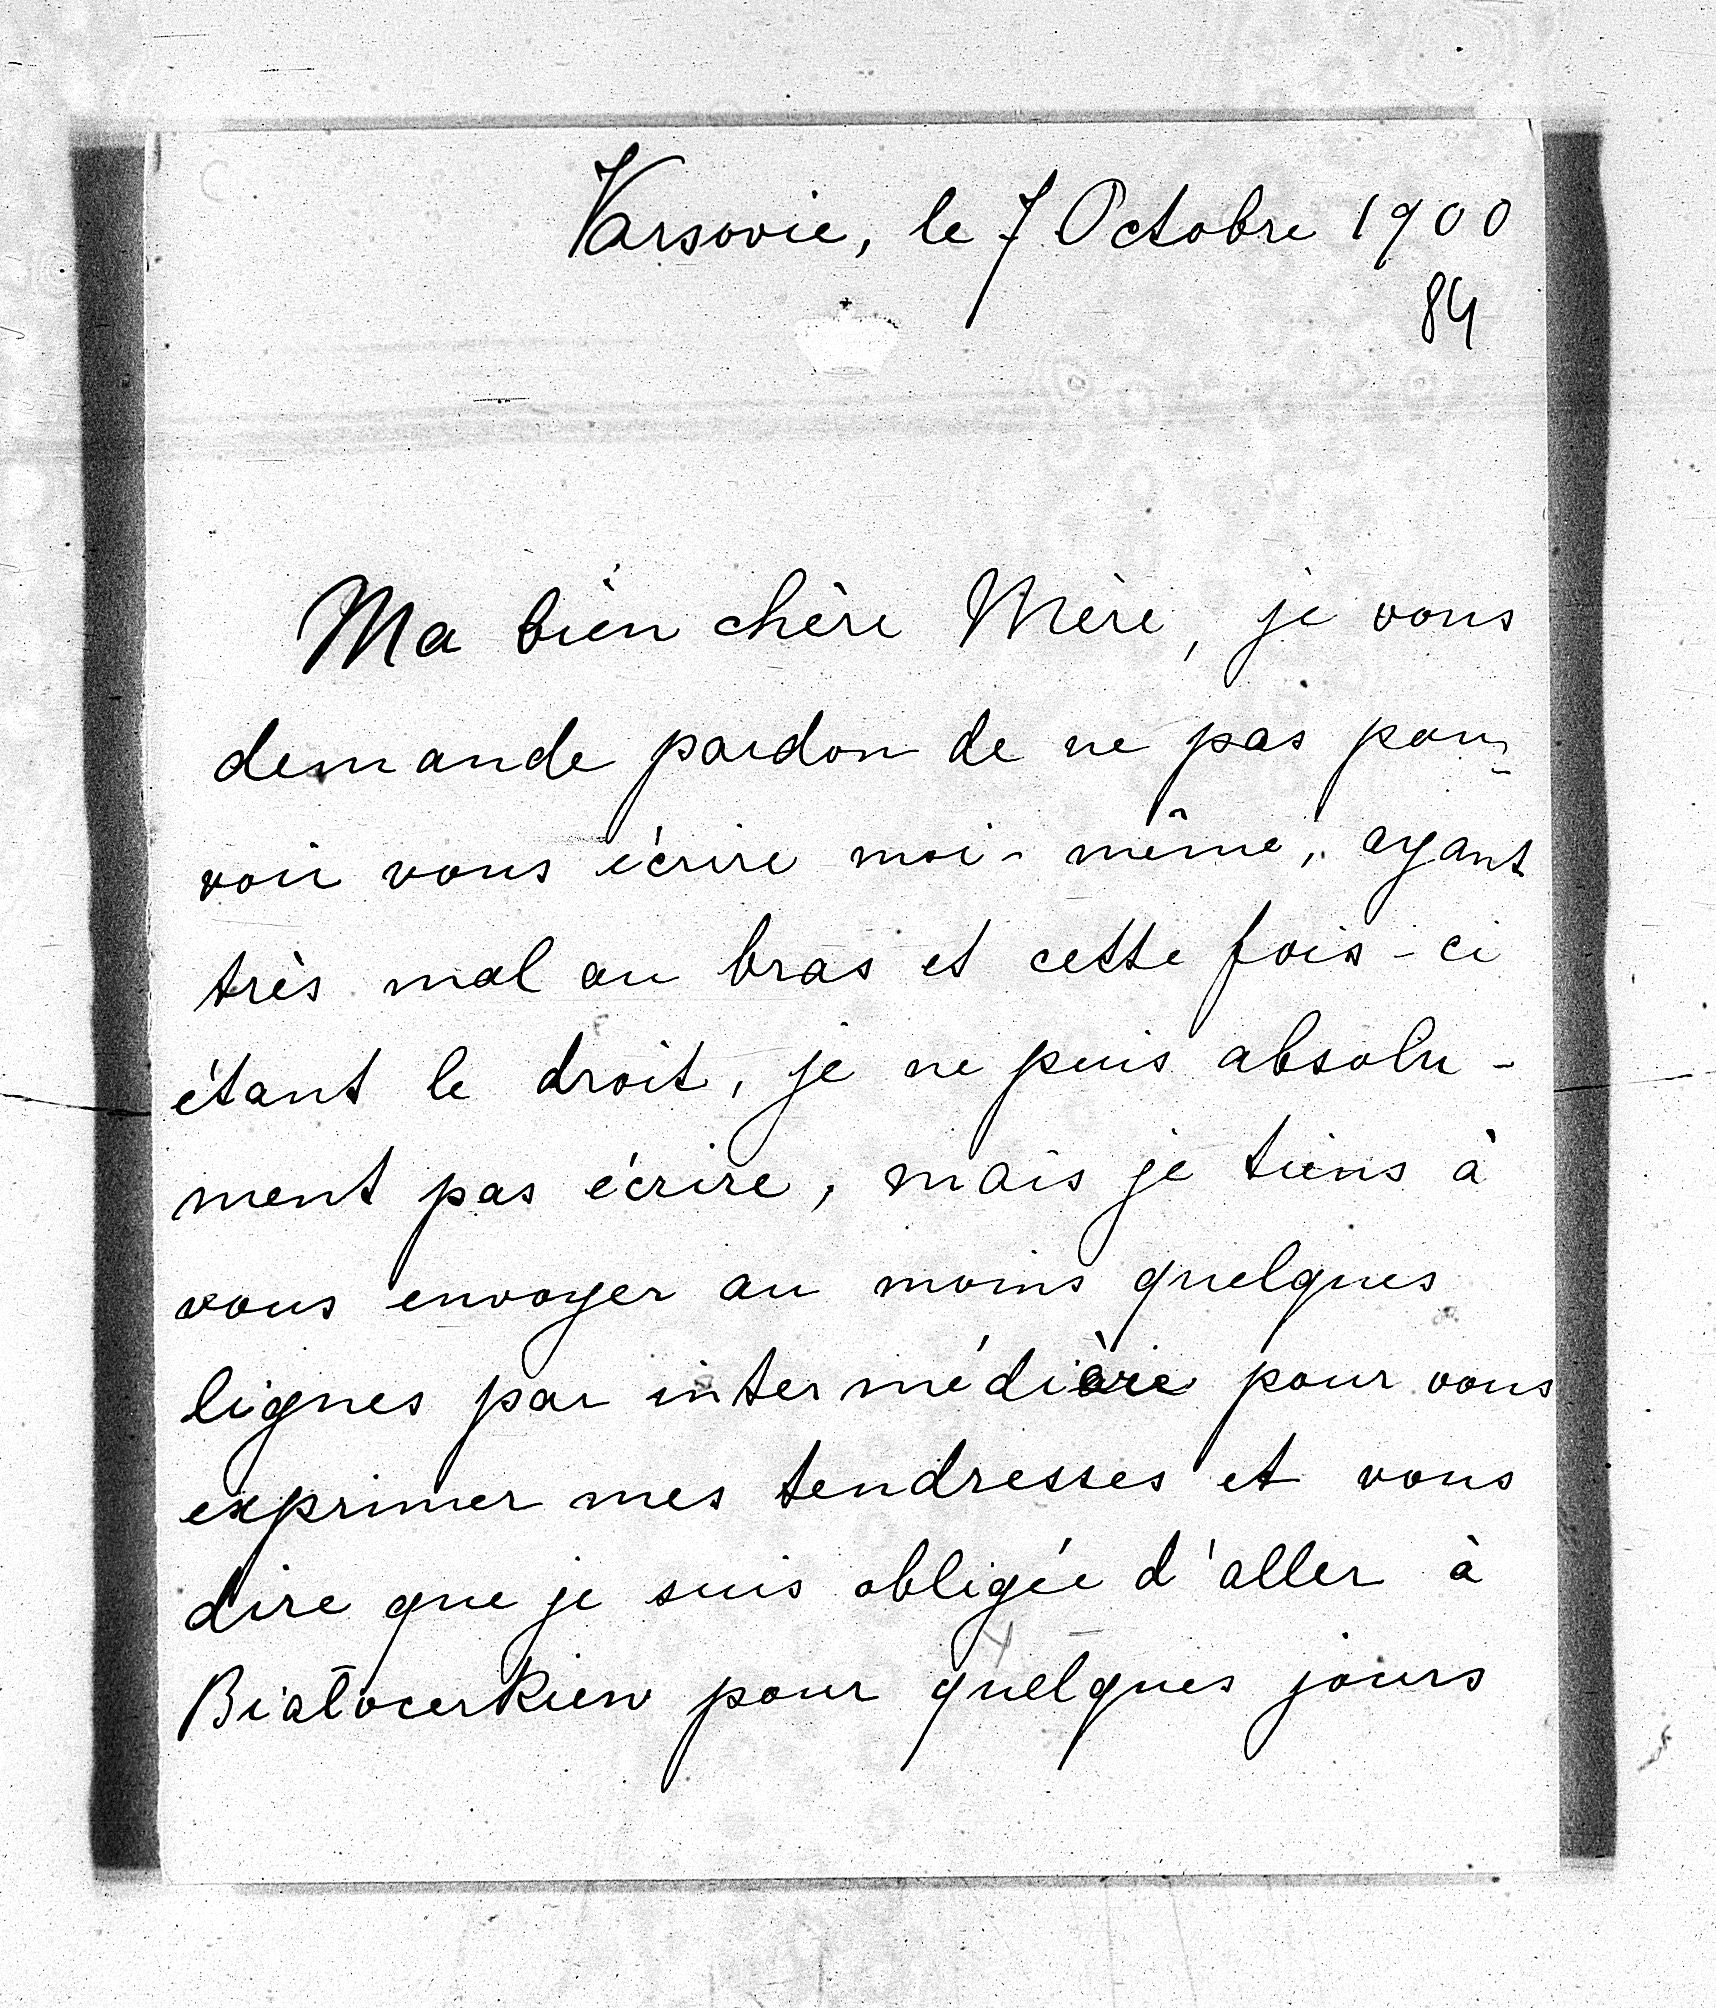 Varsovie, le 7 Octobre 1900
84
Ma bien chère Mère, je vous
demande pardon de ne pas pou-
voir vous écrire moi-même, ayant
très mal au bras et cette fois-ci
étant le droit, je ne puis absolu-
ment pas écrire, mais je tiens à
vous envoyer au moins quelques
lignes par intermédière pour vous
exprimer mes tendresses et vous
dire que je suis obligée d'aller à
Białocerkiew pour quelques jours